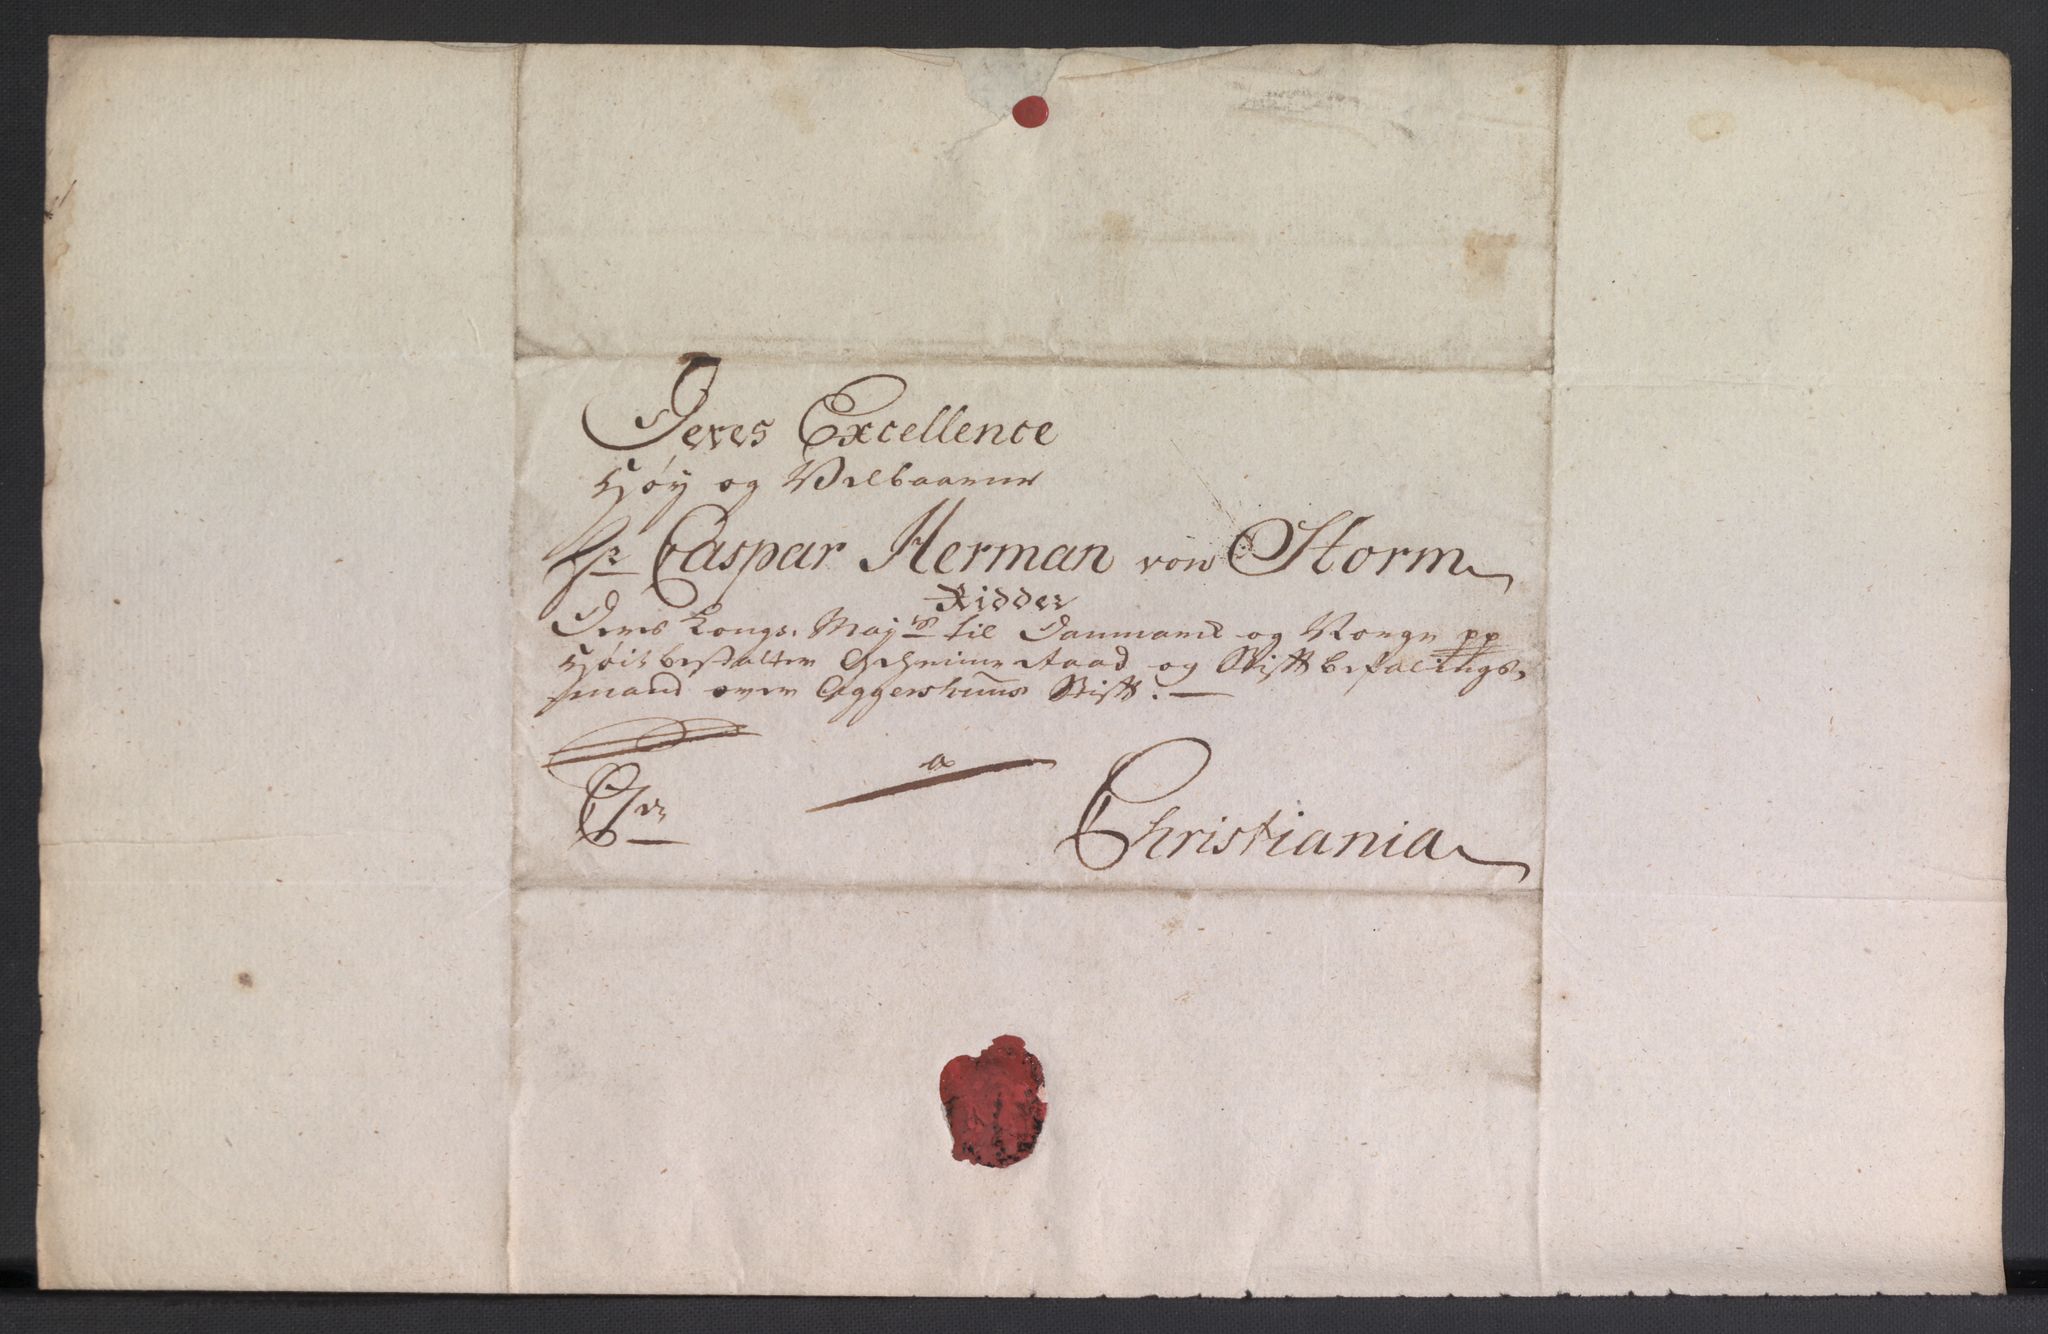 Deres Excellence
Høy og Velbaarne
Hr Caspar Herman von Storm
Ridder
Deres Kongs. Mayts til Danmarck og Norge pp
Høit bestalter Geheime Raad og Stiftbefalings-
mand over Aggershuus Stift.
a
Christiania